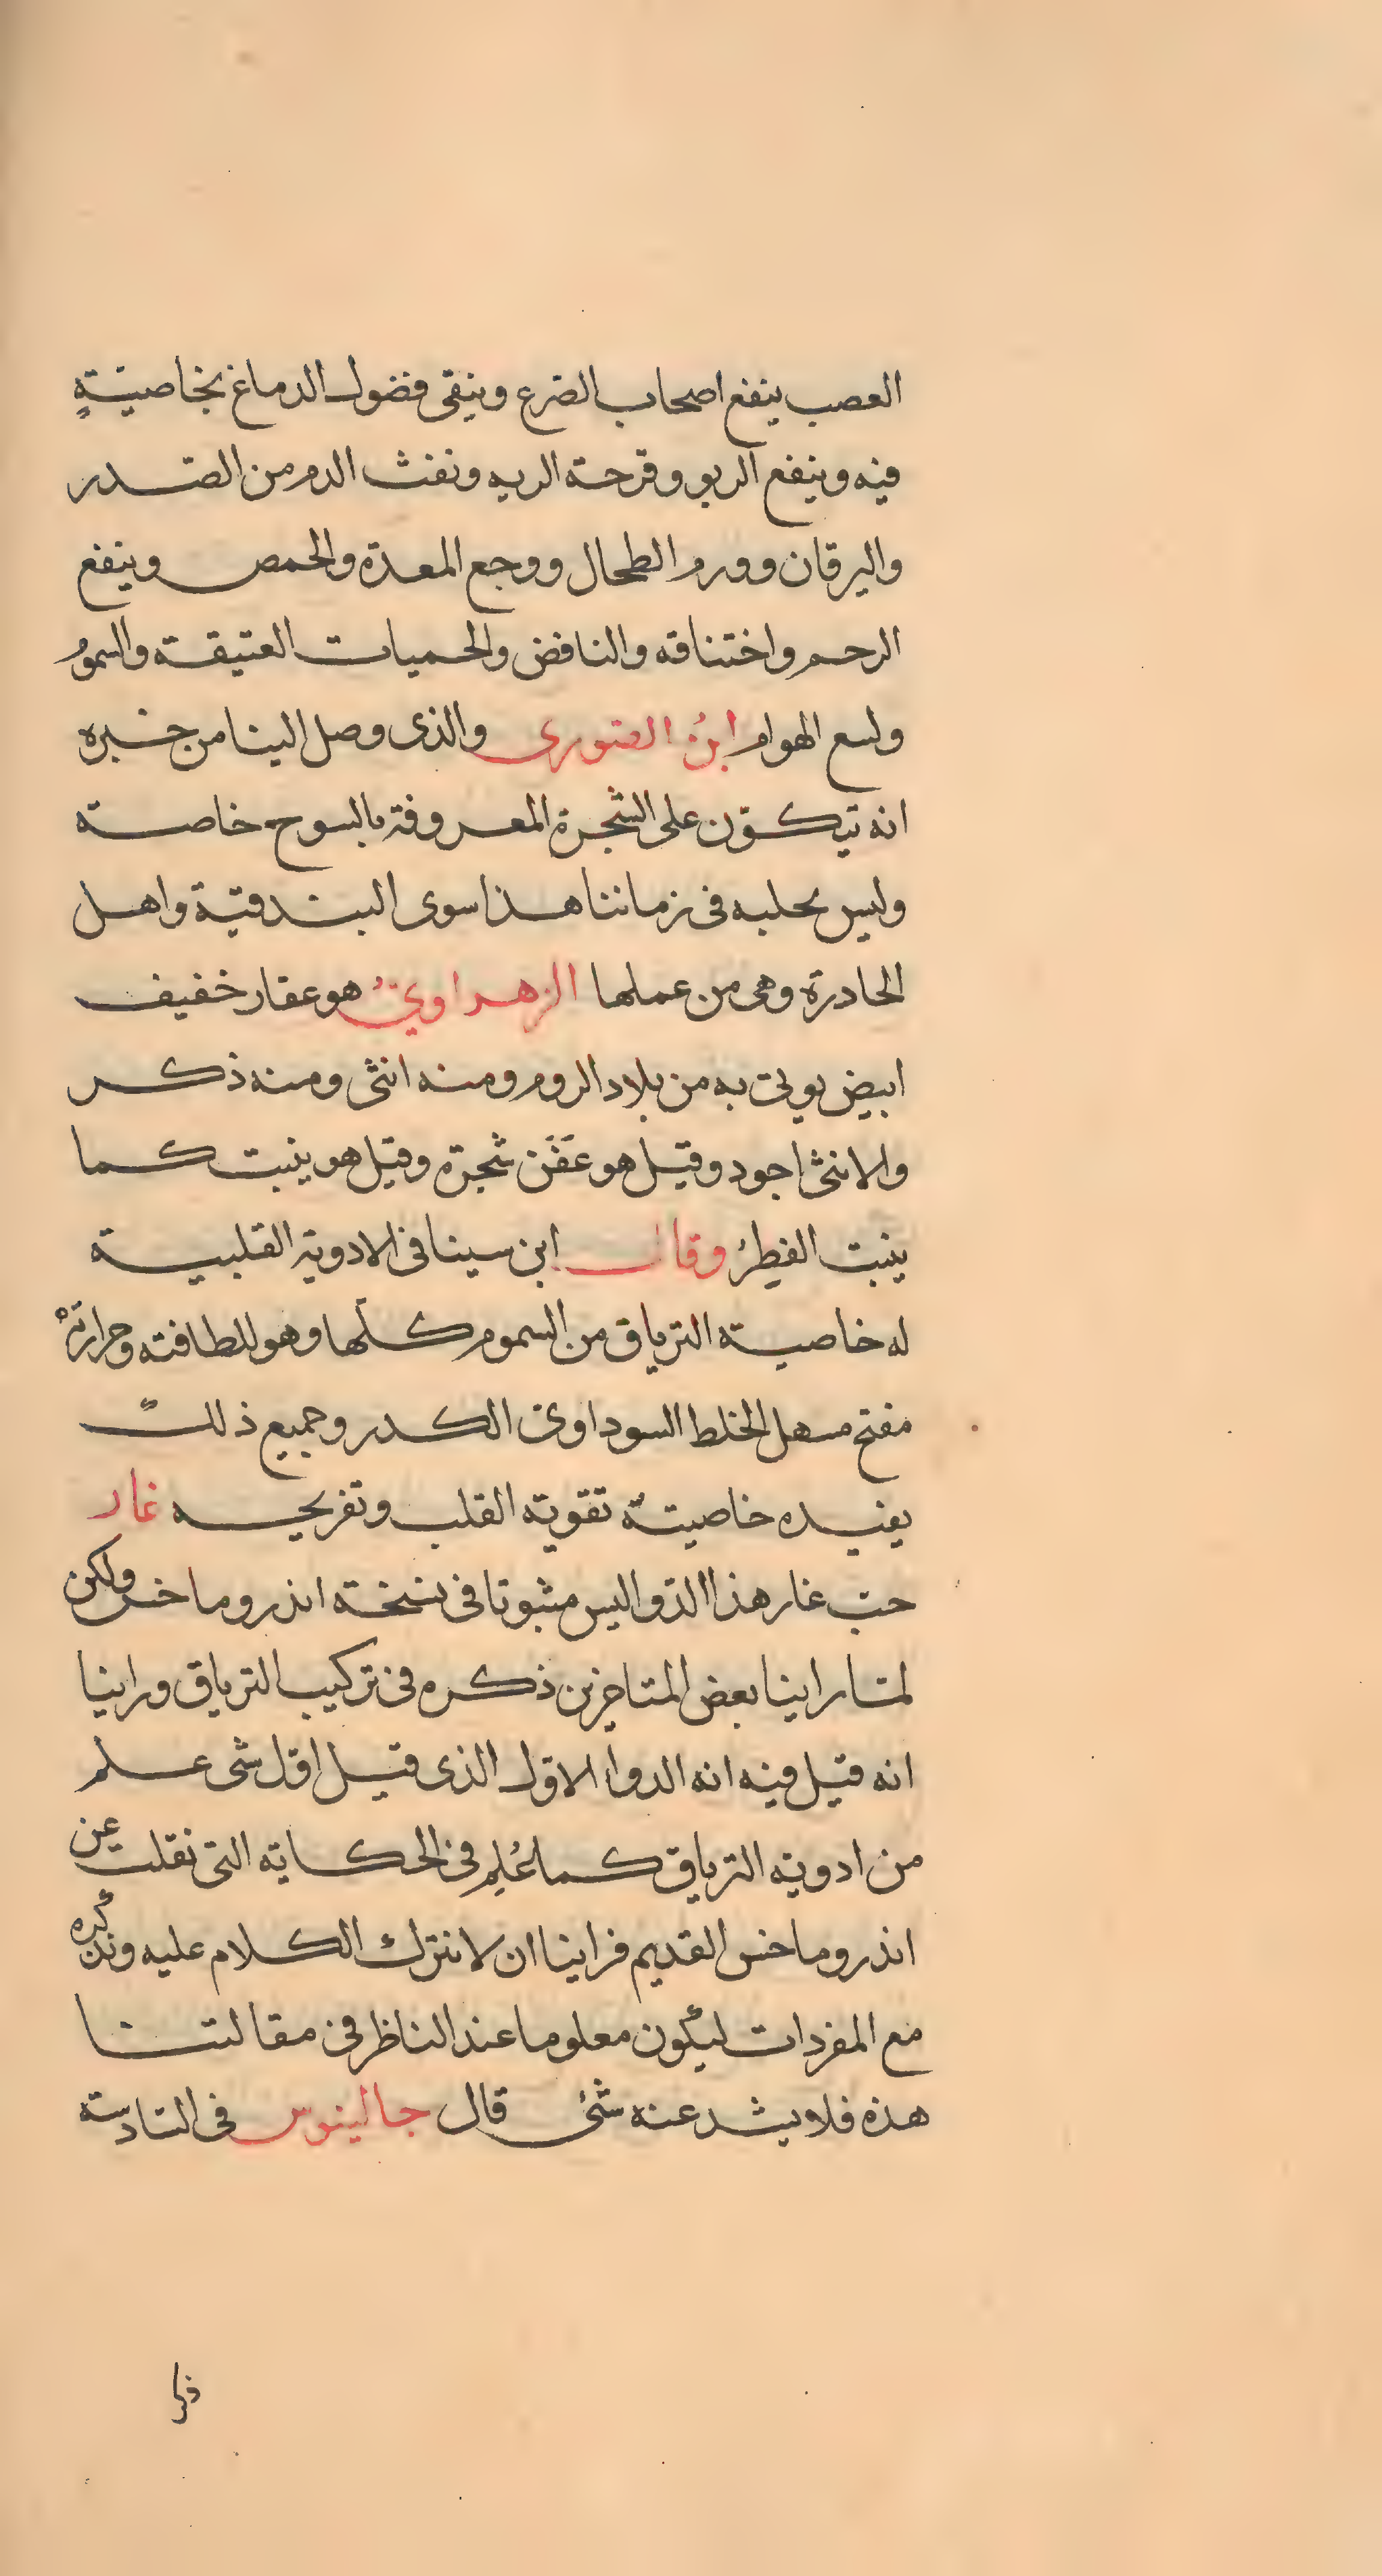 العصب ينفع اصحاب الصرع وينقى فضول الدماغ بخاصيّةٍ
فيه وينفع الربو وقرحة الريه ونفث الدم من الصّدر
واليرقان وورم الطحال ووجع المعدة والحمص وينفع
الرحم واختناقه والنافض والحميات العتيقة والسموم
ولسع الهوام ابنُ الصورى والذى وصل الينا من خبره
انه يتكوّن على الشجرة المعروفة بالسوح خاصة
وليس يجلبه فى زماننا هذا سوى البندقيّة واهل
الحادرة وهى من عملها الزهراوىُّ هو عقار خفيف
ابيض يوتى به من بلاد الروم ومنه انثى ومنه ذكر
والانثى اجود وقيل هو عَفَن شجرة وقيل هو ينبت كما
ينبت الفطرُ وقال ابن سينا فى الادوية القلبية
له خاصية الترياق من السموم كلّها وهو للطافته وحرارته
مفتح مسهل للخلط السوداوى الكدر وجميع ذلك
يفيده خاصيّة تقوية القلب وتفريحه غار
حبّ غار هذا الدّوا ليس مثبوتا فى نسخة اندروماخس ولكن
لمّا راينا بعض المتاخرين ذكره فى تركيب الترياق وراينا
انه قيل فيه انه الدوا الاوّل الذى قيل اوّل شى علم
من ادوية الترياق كما عُلِم فى الحكاية التى نقلت عن
اندروماخس القديم فراينا ان لا نترك الكلام عليه ونذكره
مع المفردات ليكون معلوما عند الناظر فى مقالتنا
هذه فلا يشد عنه شئ قال جالينوس فى السّادسة